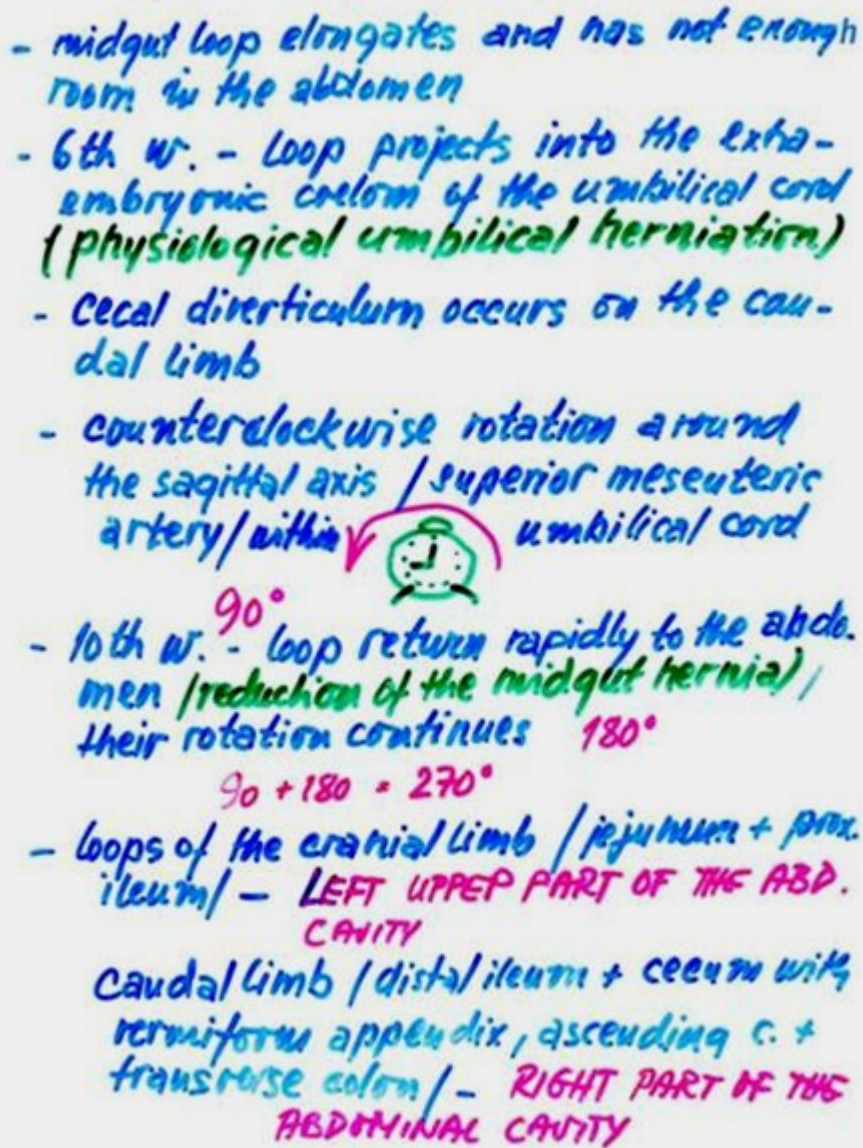 - midgut loop elongates and has not enough
room in the abdomen
- 6th w. - loop projects into the extra-
embryonic coelom of the umbilical cord
(physiological umbilical herniation)
- cecal diverticulum occurs on the cau-
dal limb
- counterclockwise rotation around
the sagittal axis /superior mesenteric
artery/ within umbilical cord
90°
- 10th w. - loop return rapidly to the abdo-
men /reduction of the midgut hernia/,
their rotation continues 180°
90 + 180 = 270°
- loops of the cranial limb /jejunum + prox.
ileum/ - LEFT UPPER PART OF THE ABD.
CAVITY
caudal limb /distal ileum + cecum with
vermiform appendix, ascending c. +
transverse colon/ - RIGHT PART OF THE
ABDOMINAL CAVITY